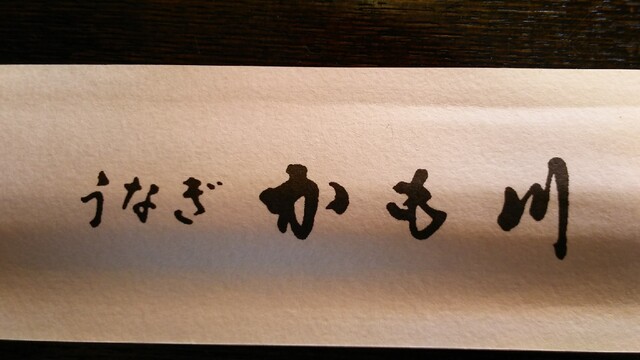 うなぎ かも川